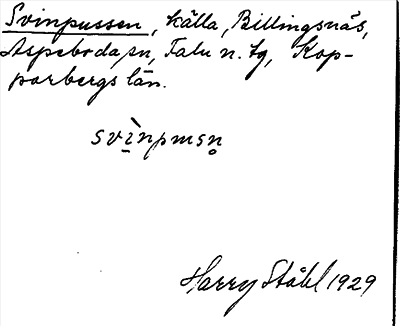 Svinpussen, källa, Billingsnäs,
Aspeboda sn, Falu n. tg, Kop-
parbergs län.
svì̲npmsn̥
Harry Ståhl 1929